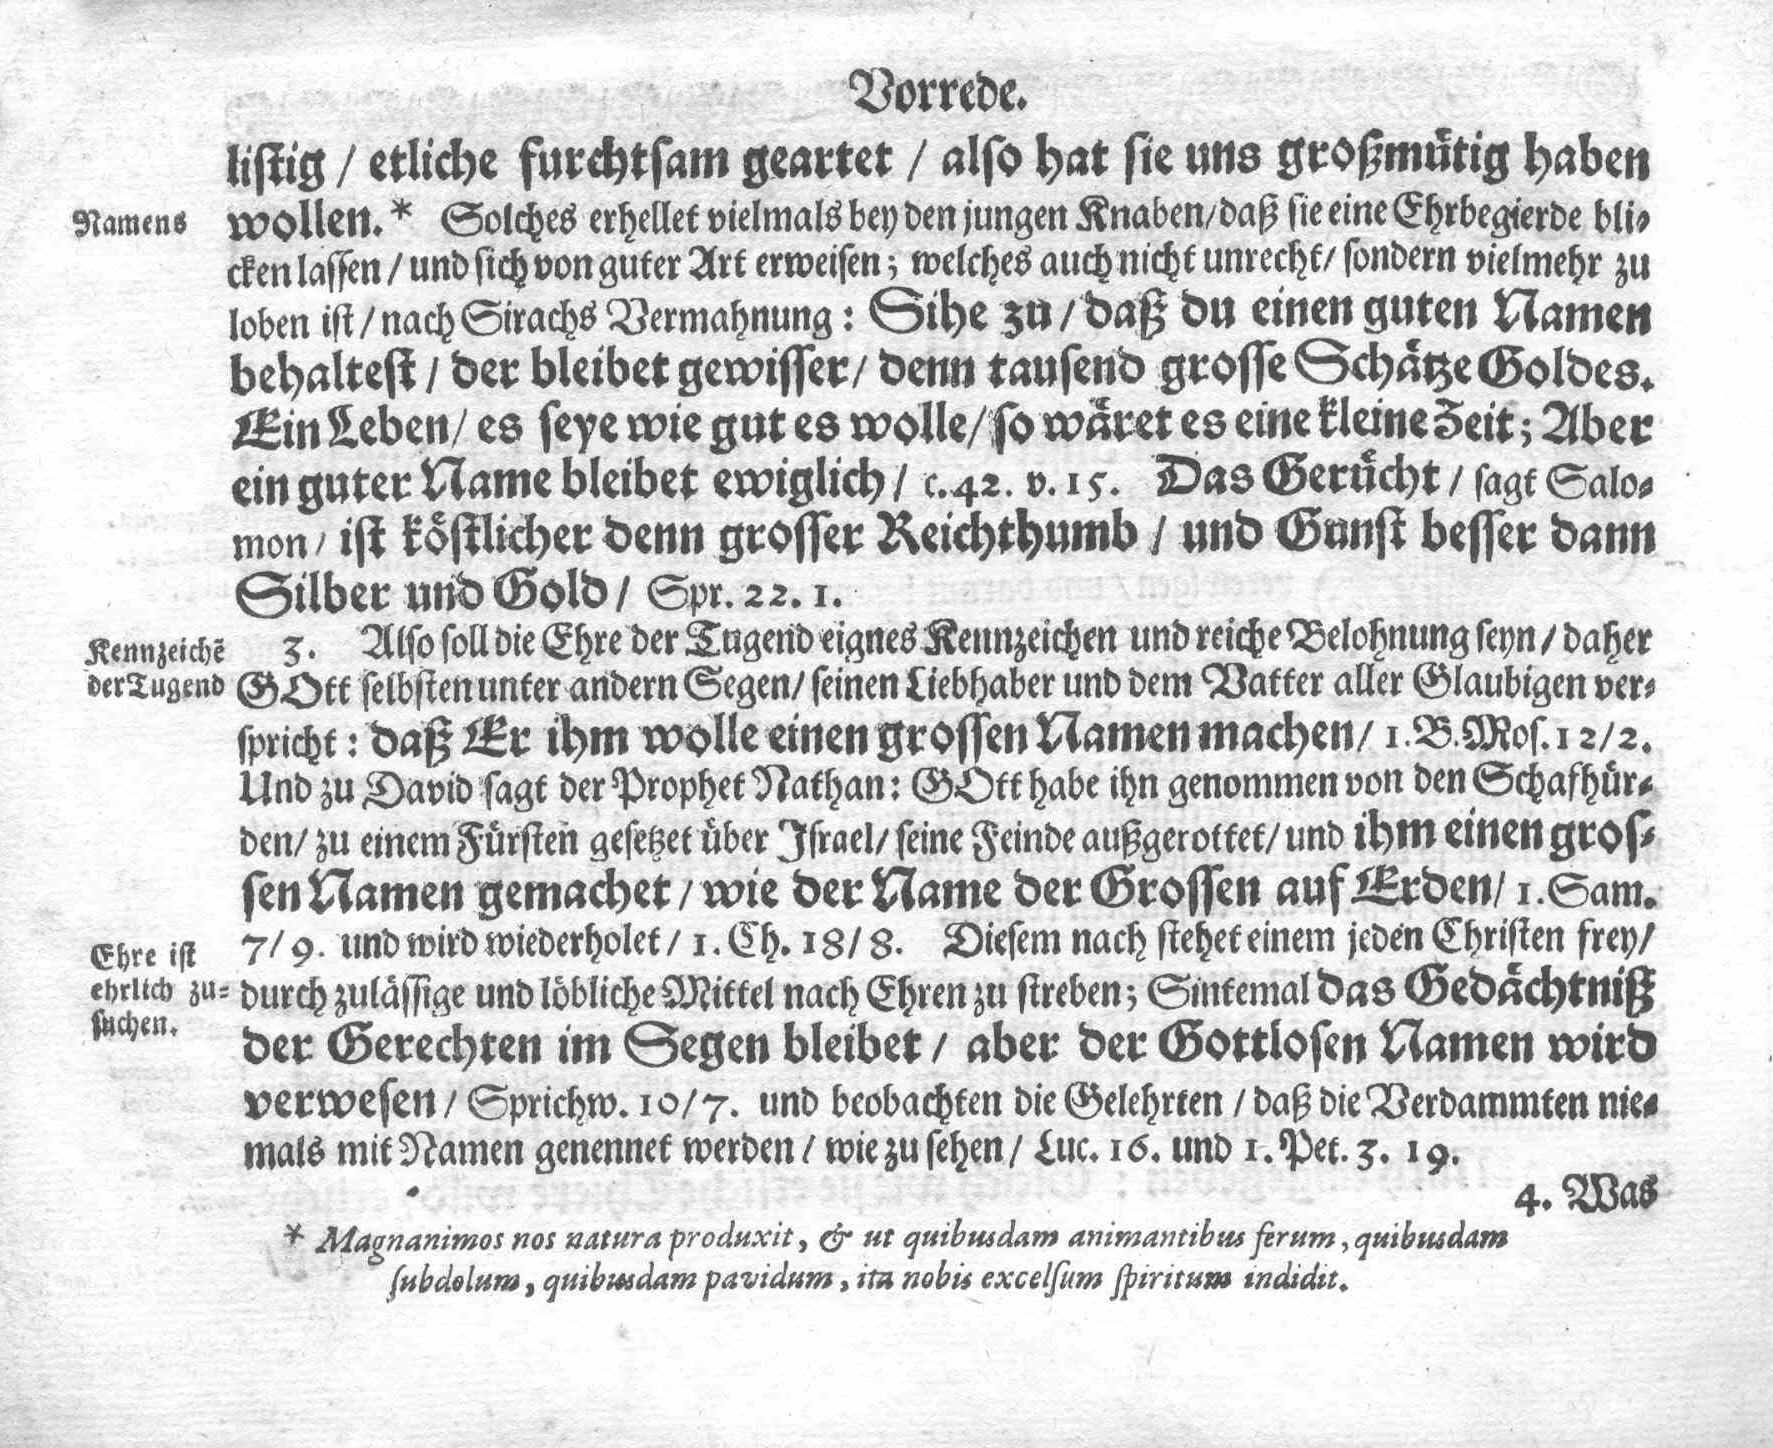 Vorrede.
listig / etliche furchtsam geartet / also hat sie uns großmütig haben
Namens
wollen.* Solches erhellet vielmals bey den jungen Knaben/daß sie eine Ehrbegierde bli-
cken lassen / und sich von guter Art erweisen; welches auch nicht unrecht/ sondern vielmehr zu
loben ist / nach Sirachs Vermahnung: Sihe zu / daß du einen guten Namen
behaltest / der bleibet gewisser/ denn tausend grosse Schätze Goldes.
Ein Leben/ es seye wie gut es wolle/ so wäret es eine kleine Zeit; Aber
ein guter Name bleibet ewiglich/ c.42. v.15. Das Gerücht / sagt Salo-
mon/ ist köstlicher denn grosser Reichthumb / und Gunst besser dann
Silber und Gold/ Spr. 22. 1.
Kennzeichẽ
der Tugend
3. Also soll die Ehre der Tugend eignes Kennzeichen und reiche Belohnung seyn/ daher
GOtt selbsten unter andern Segen/ seinen Liebhaber und dem Vatter aller Glaubigen ver-
spricht: daß Er ihm wolle einen grossen Namen machen/ 1.B.Mos.12/2.
Und zu David sagt der Prophet Nathan: GOtt habe ihn genommen von den Schafhür-
den/ zu einem Fürsten gesetzet über Israel/ seine Feinde außgerottet/ und ihm einen gros-
sen Namen gemachet / wie der Name der Grossen auf Erden/ 1.Sam.
Ehre ist
ehrlich zu-
suchen.
7/9. und wird wiederholet / 1. Ch. 18/8. Diesem nach stehet einem jeden Christen frey/
durch zulässige und löbliche Mittel nach Ehren zu streben; Sintemal das Gedächtniß
der Gerechten im Segen bleibet / aber der Gottlosen Namen wird
verwesen / Sprichw. 10/7. und beobachten die Gelehrten / daß die Verdammten nie-
mals mit Namen genennet werden / wie zu sehen / Luc. 16. und 1. Pet. 3. 19.
4. Was
* Magnanimos nos natura produxit, & ut quibusdam animantibus ferum, quibusdam
subdolum, quibusdam pavidum, ita nobis excelsum spiritum indidit.